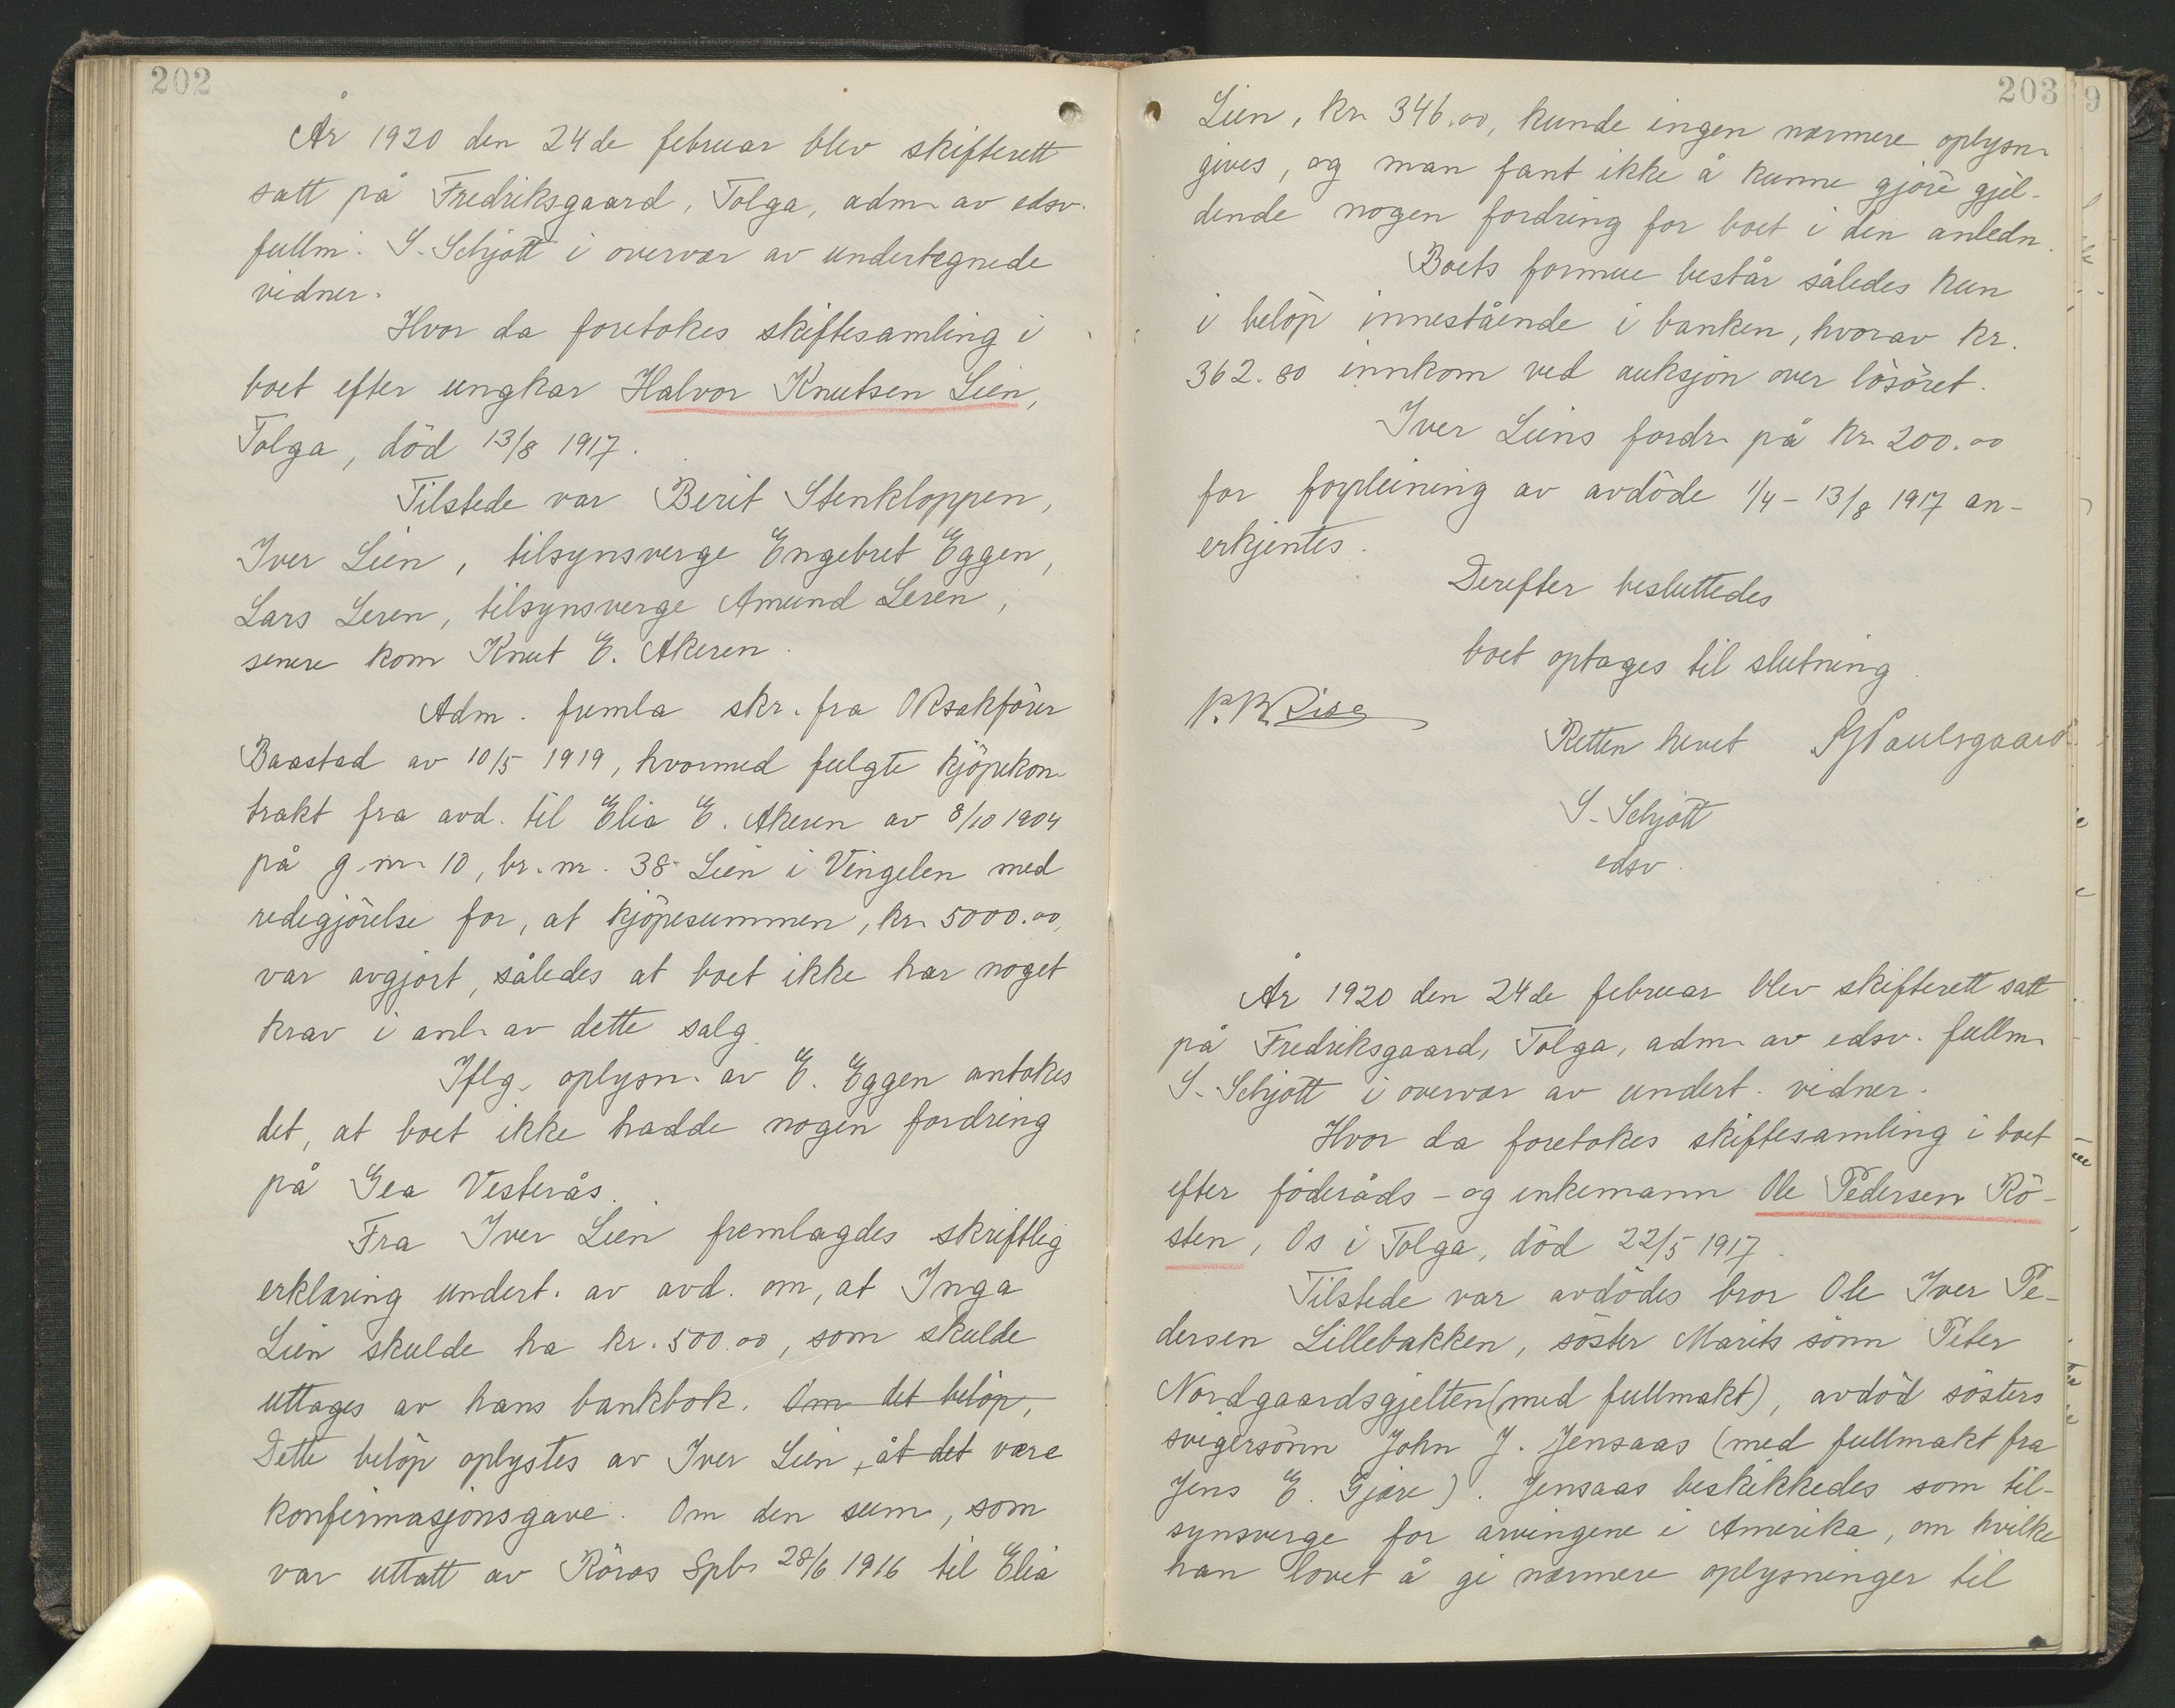 202
År 1920 den 24de februar blev skifterett
satt på Fredriksgaard, Tolga, adm. av edsv.
fullm. S. Schjött i overvær av undertegnede
vidner.
Hvor da foretokes skiftesamling i
boet efter ungkar Halvor Knutsen Lien,
Tolga, död 13/8 1917.
Tilstede var Berit Stenkloppen,
Iver Lien, tilsynsverge Engebret Eggen,
Lars Leren, tilsynsverge Amund Leren,
senere kom Knut E. Akeren.
Adm. fremla skr. fra ORsakförer
Baastad av 10/5 1919, hvormed fulgte kjöpekon-
trakt fra avd. til Elia E. Akeren av 8/10 1904
på g.nr. 10, br.nr. 38 Lien i Vingelen med
redegjörelse for, at kjöpesummen, kr. 5000.00,
var avgjort, således at boet ikke har noget
krav i anl. av dette salg.
Iflg. oplysn. av E. Eggen antokes
det, at boet ikke hadde nogen fordring
på Gea Vesterås.
Fra Iver Lien fremlagdes skriftlig
erklæring undert. av avd. om, at Inga
Lien skulde ha kr. 500.00, som skulde
uttages av hans bankbok. Om det belöp,
Dette belöp oplystes av Iver Lien, åt det være
konfirmasjonsgave. Om den sum, som
var uttatt av Röros Spb. 28/6 1916 til Elia
203
Lien, kr. 346.00, kunde ingen nærmere oplysn.
gives, og man fant ikke å kunne gjöre gjel-
dende nogen fordring for boet i den anledn.
Boets formue består således kun
i belöp innestående i banken, hvorav kr.
362.80 innkom ved auksjon over lösöret.
Iver Liens fordr. på kr. 200.00
for forpleining av avdöde 1/4 - 13/8 1917 an-
erkjentes.
Derefter besluttedes
boet optages til slutning
Retten hevet
S. Schjött
edsv.
År 1920 den 24de februar blev skifterett satt
på Fredriksgaard, Tolga, adm. av edsv. fullm.
S. Schjött i overvær av undert. vidner.
Hvor da foretokes skiftesamling i boet
efter föderåds- og enkemann Ole Pedersen Rö-
sten, Os i Tolga, död 22/5 1917.
Tilstede var avdödes bror Ole Iver Pe-
dersen Lillebakken, söster Marits sönn Peter
Nordgaardsgjelten (med fullmakt), avdöd sösters
svigersönn John J. Jensaas (med fullmakt fra
Jens E. Gjære). Jensaas beskikkedes som til-
synsverge for arvingene i Amerika, om hvilke
han lovet å gi nærmere oplysninger til
9